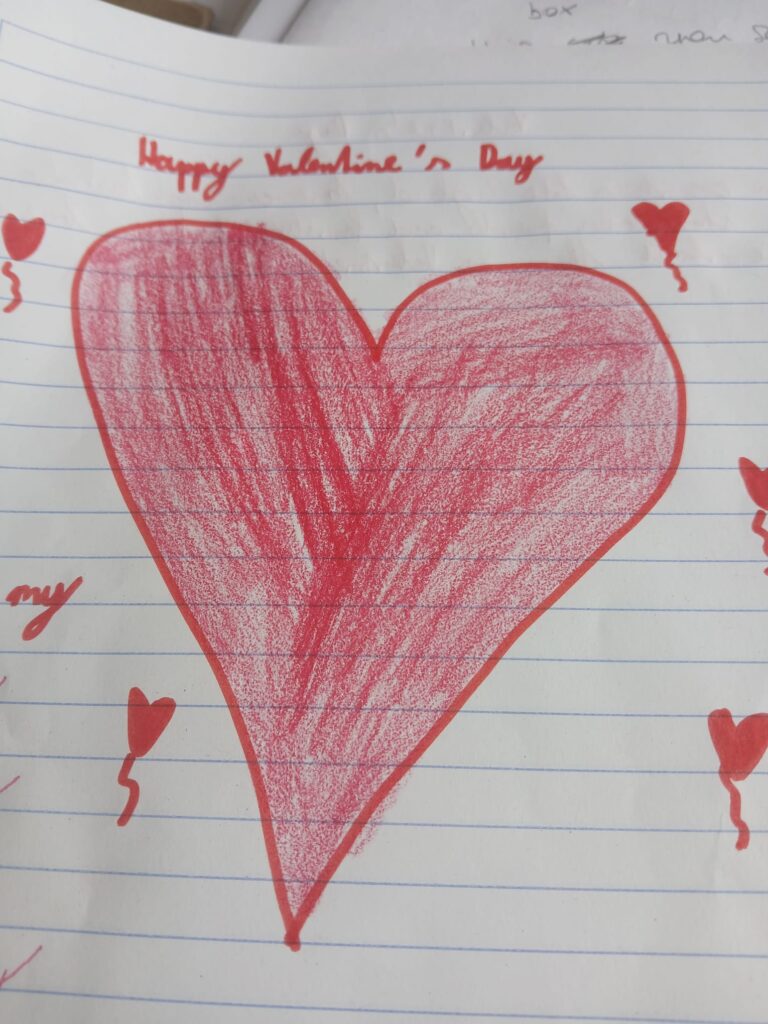 box
Happy Valentine's Day
my